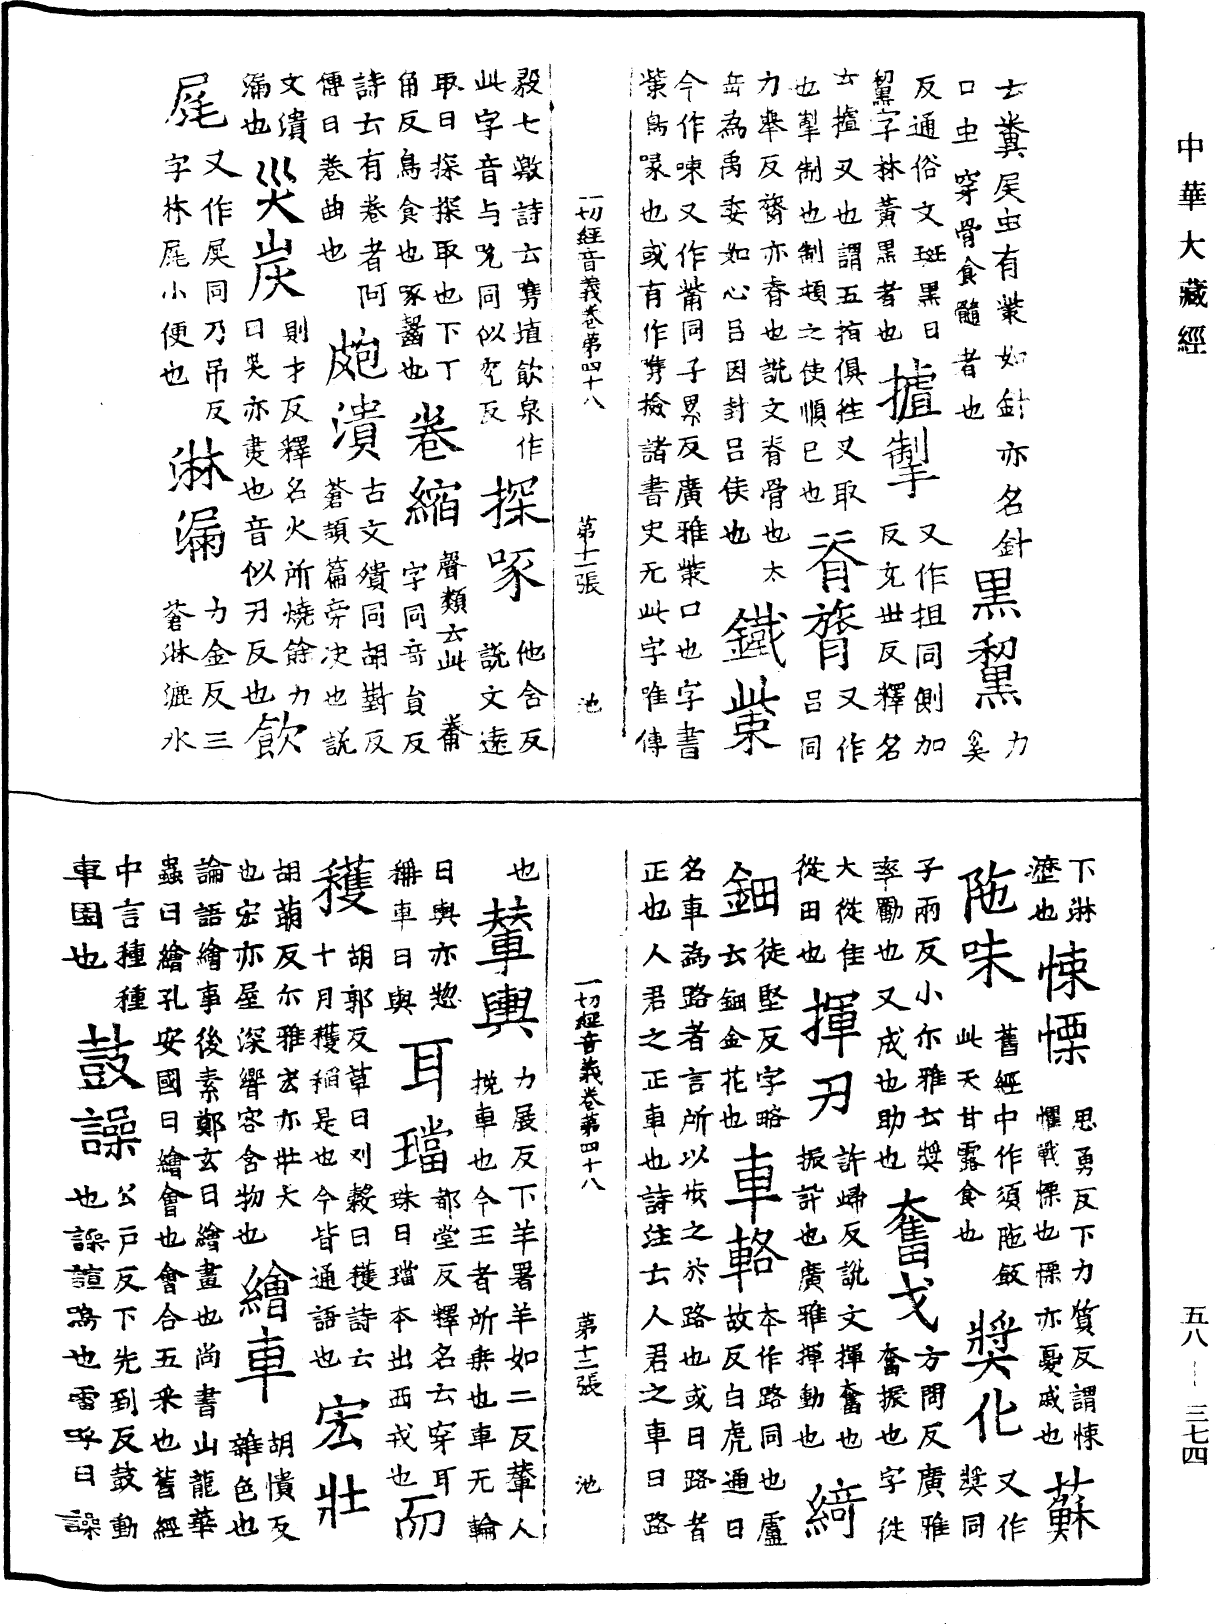 中華大藏經
士糞屎虫有觜如針亦名針
口虫穿骨食髓者也
黑䵩 力奚
反通俗文斑黑曰
䵩字林黄黑者也
摣掣 又作抯同側加
反充世反釋名
云摣叉也謂五指俱往叉取
也掣制也制頓之使順已也
脊膂 又作
呂同
力舉反膂亦脊也說文脊骨也太
岳為禹委如心呂因封呂侯也
鐵觜
今作㖢又作同子累反廣雅觜口也字書
觜鳥喙也或有作撿諸書史无此字唯傳
一切經音義卷第四十八 第十一張 池
毅七激詩云埴飲泉作
此字音与咒同似兖反
探啄 他含反
說文遠
取曰探探取也下丁
角反鳥食也啄齧也
卷縮 聲類云此
字同音員反
詩云有卷者阿
傳曰卷曲也
皰潰 古文殨同胡對反
蒼頡篇旁决也說
文潰
漏也
災炭 則才反釋名火所燒餘力
曰炎亦夷也音似刃反也
飲
又作同乃吊反
字林小便也
淋漏 力金反三
蒼淋漉水
下淋
瀝也
悚慄 思勇反下力質反謂悚
懼戰慄也慄亦憂戚也
蘇
陁味 舊經中作須陁飯
此天甘露食也
奬化 又作
奬同
子兩反小尔雅云奬
率勵也又成也助也
奮戈 方問反廣雅
奮振也字從
大從隹
從田也
揮刃 許歸反說文揮奮也
振訐也廣雅揮動也
綺
鈿 徒堅反字略
云鈿金花也
車輅 本作路同也盧
故反白虎通曰
名車為路者言所以步之於路也或曰路者
正也人君之正車也詩注云人君之車曰路
一切經音義卷第四十八 第十二張 池
也
輦輿 力展反下羊署羊如二反輦人
挽車也今王者所乗也車无輪
曰輿亦惣
稱車曰輿
耳璫 都堂反釋名云穿耳
珠曰璫本出西戎也
而
穫 胡郭反草曰刈穀曰穫詩云
十月穫稻是也今皆通語也
宏壯
胡萌反尔雅宏亦壯大
也宏亦屋深響容含物也
繪車 胡憒反
雜色也
論語繪事後素鄭玄曰繪畫也尚書山龍華
蟲曰繪孔安國曰繪會也會合五采也舊經
中言種種
車圍也
鼓譟 公戶反下先到反鼓動
也譟諠鳴也雷呼曰譟
五八—三七四